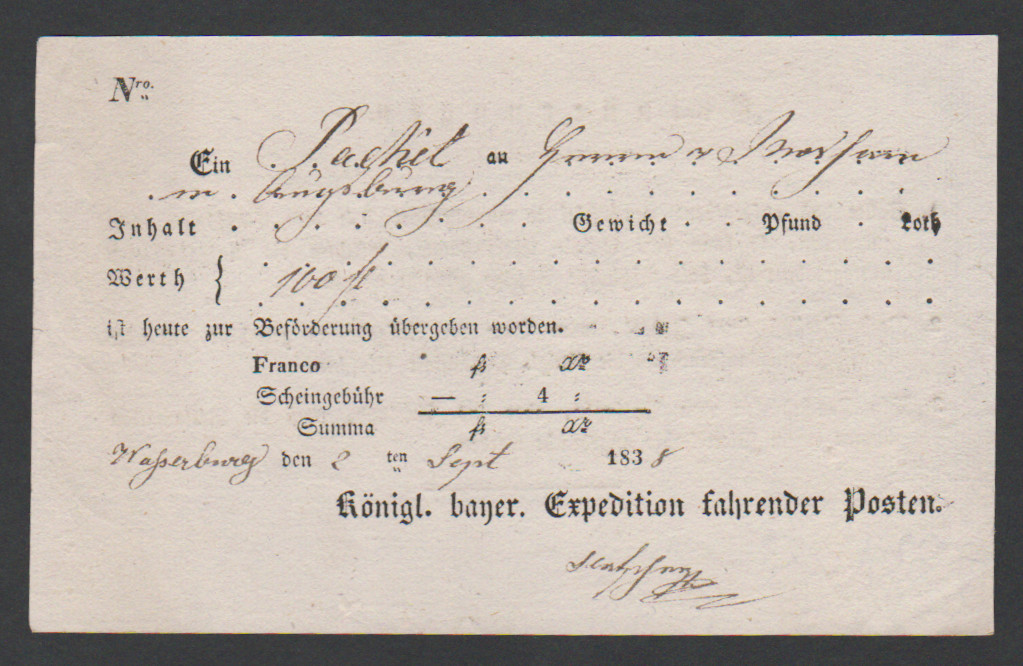 Nro.
Ein Packet an Herrn v
in Augsburg
Inhalt . . . . . . . Gewicht . . Pfund . Loth
Werth { 100 fl
ist heute zur Beförderung übergeben worden.
Franco fl xr
Scheingebühr — : 4 :
Summa fl xr
Wasserburg den 2 ten Sept 1838
Königl. bayer. Expedition fahrender Posten.